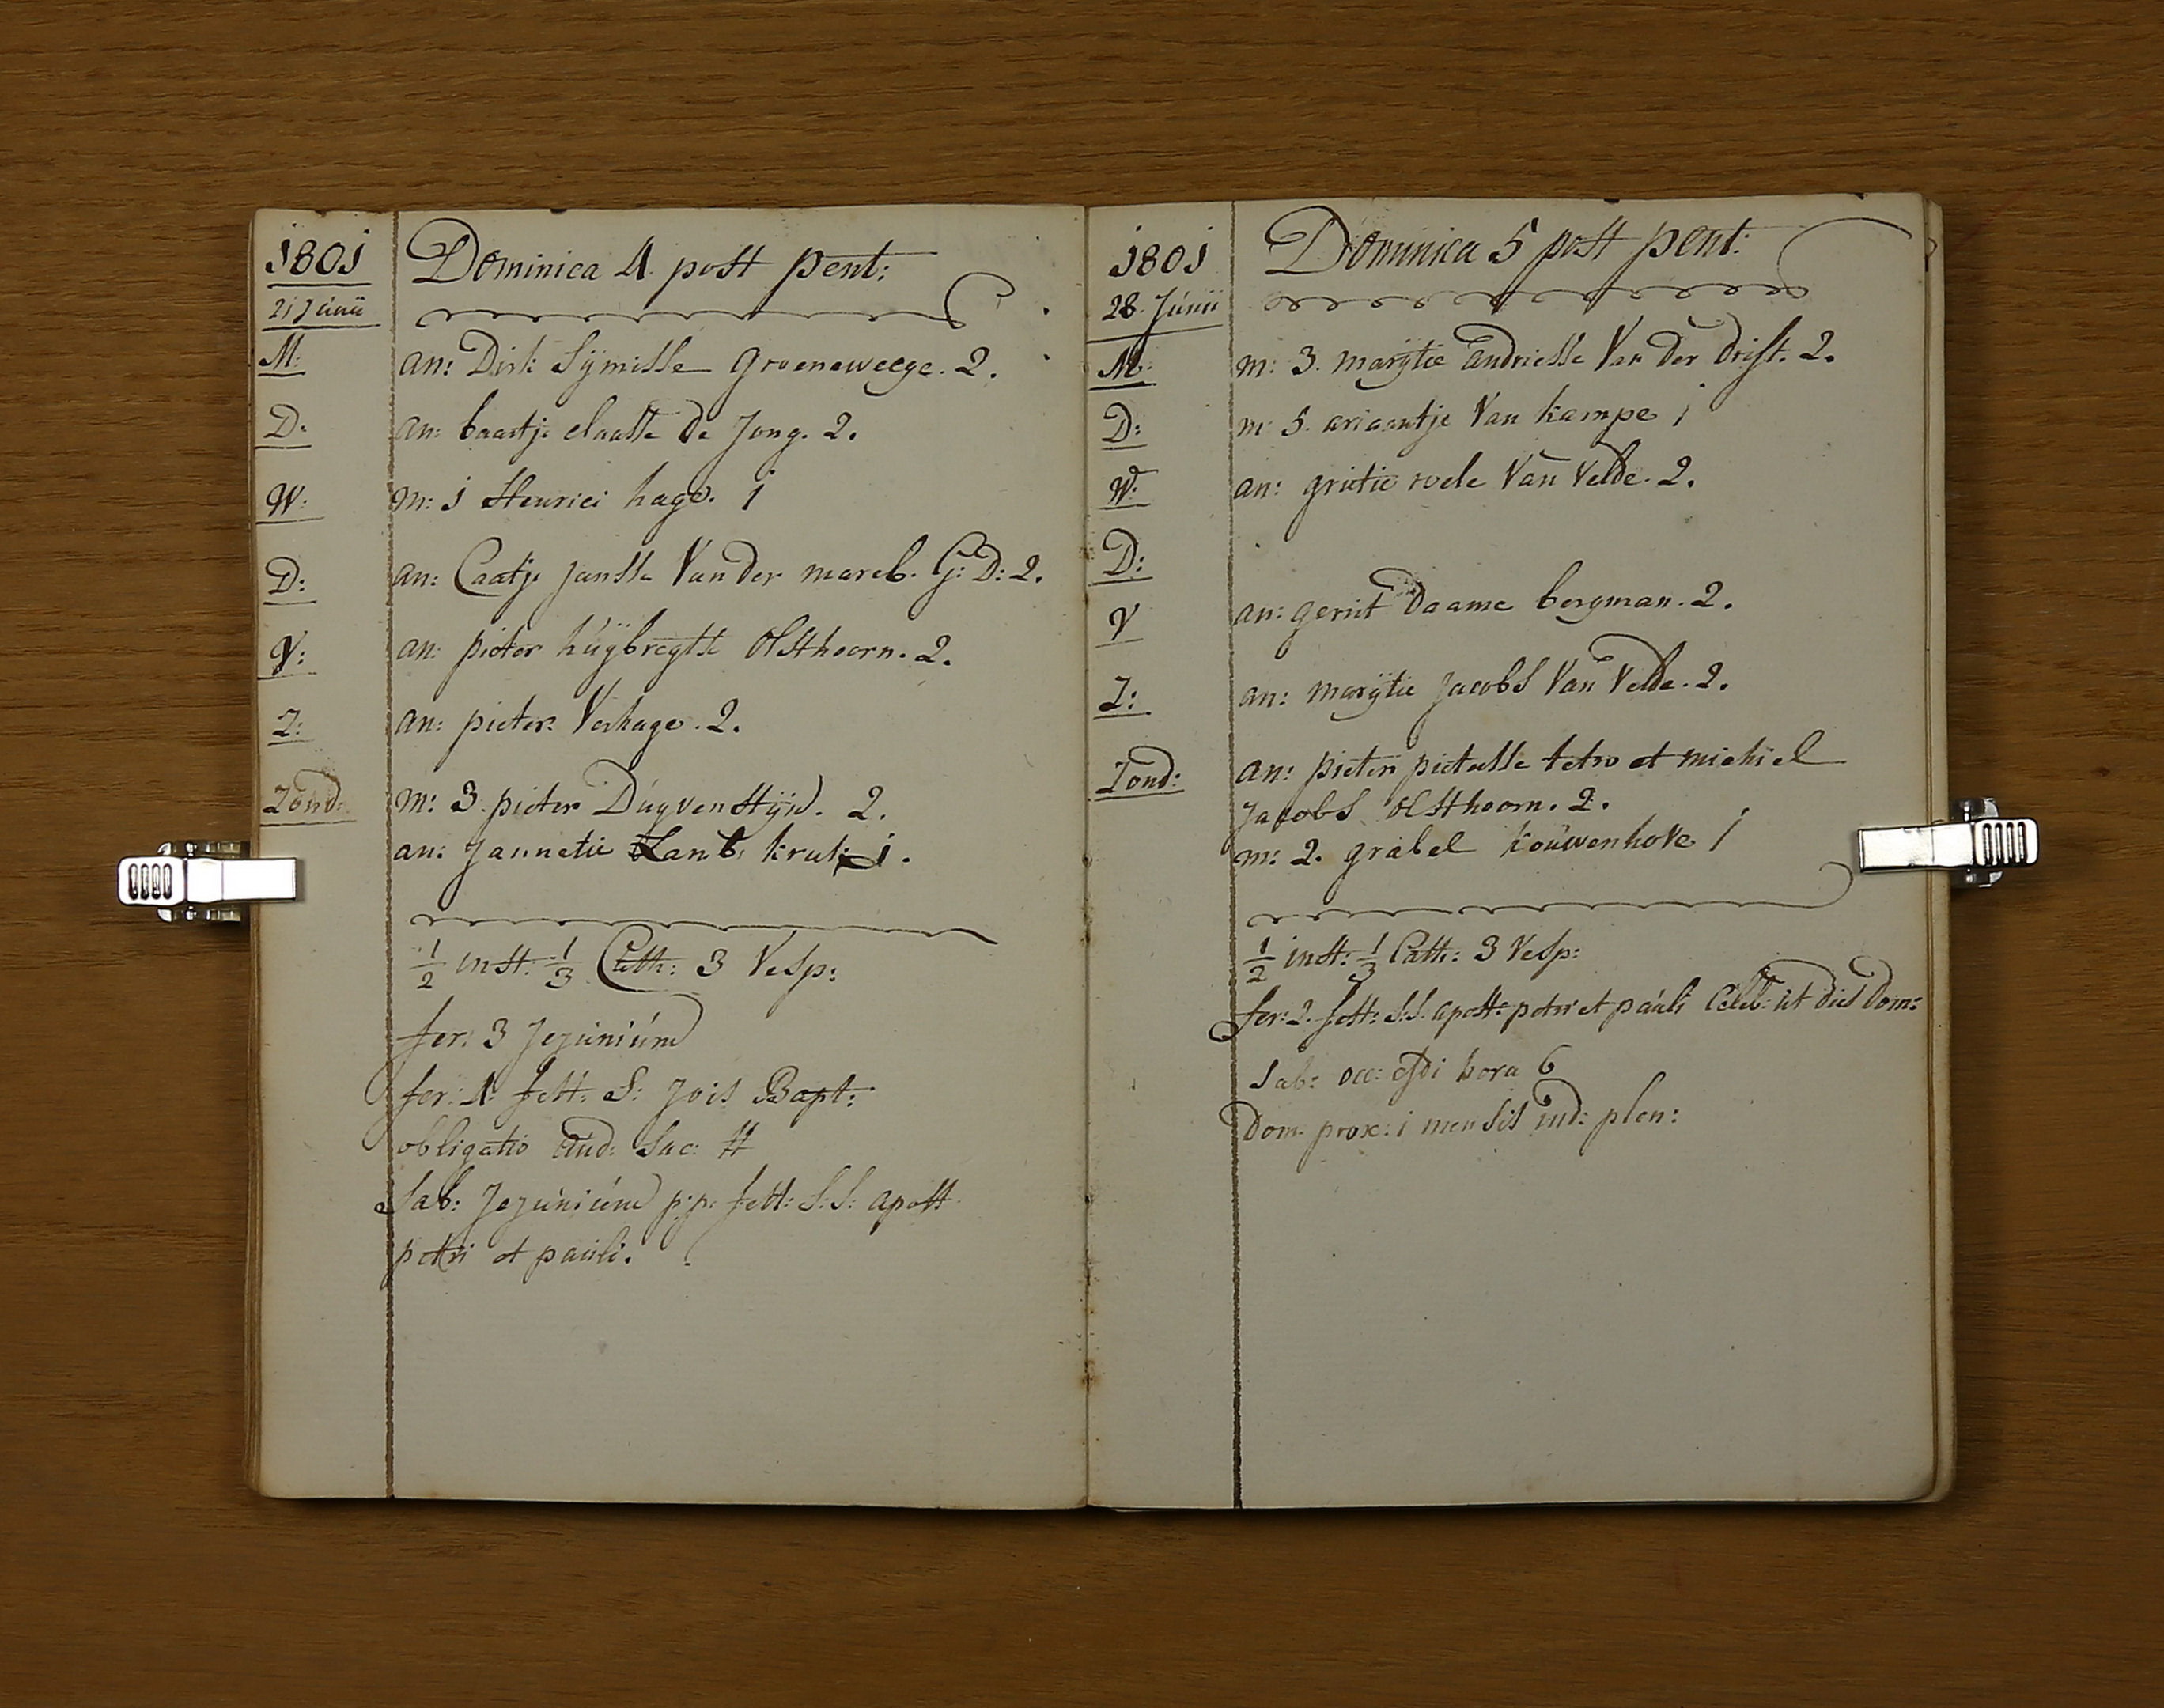 1801
Dominica 4 post pent:
21 Junii
M: an: Dirk Sijmisse Groeneweege. 2.
D. an: baartje claasse de Jong. 2.
W: m: 1 Henrici hage. 1
D: an: Caatje Jansse Van der marcb. G: D: 2.
V: an: pieter huijbregtse Olsthoorn. 2.
Z: an: pieter Verhage. 2.
Zond: m: 3. pieter Duijvenstijn. 2.
an: Jannetie Lamb: kruk 1.
1/2 inst: 1/3 Cath: 3 Vesp:
fer: 3 Jejunium
fer: 4 fest: S: Jois Bapt:
obligatio aud: Sac: #
Sab: Jejunium p:p: fest: S:S: apost
petri et pauli.
1801
Dominica 5 post pent:
28. Junii
M: m: 3. marijtie andriesse Van der drift. 2.
D: m: 5. ariaantje Van kampe 1
W: an: grietie roele Van Velde. 2.
D:
V an: gerrit Daame bergman. 2.
Z: an: marijtie Jacobs Van Velde. 2.
Zond: an: pieter pietersse tetro et michiel
Jacobs Olsthoorn. 2.
m: 2. grabel kouwenhove 1
1/2 inst: 1/3 Cath: 3 Vesp:
fer: 2. fest: S:S: apost: petri et pauli Celeb: ut dies Dom:
Sab: occ: hora 6
Dom. prox: 1 mensis ind: plen: